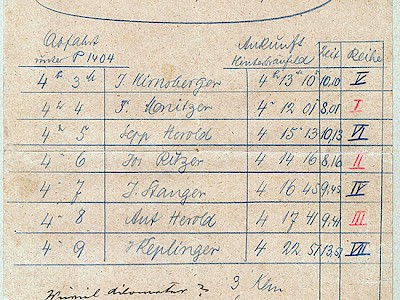 Abfahrt Ankunft Zeit Reihe
unter P 1404 Hinterbärnfeld
4 h 3 m J. Hirnsberger 4 h 13 m 10 s 10,10 V
4 4 Monitzer 4 12 01 8,01 I
4 5 Sepp Herold 4 15 13 10,13 VI
4 6 Jos Ritzer 4 14 16 8,16 II
4 7 J. Stanger 4 16 45 9,45 IV
4 8 Ant Herold 4 17 41 9,41 III
4 9 Keplinger 4 22 51 13,51 VII
3 Klm